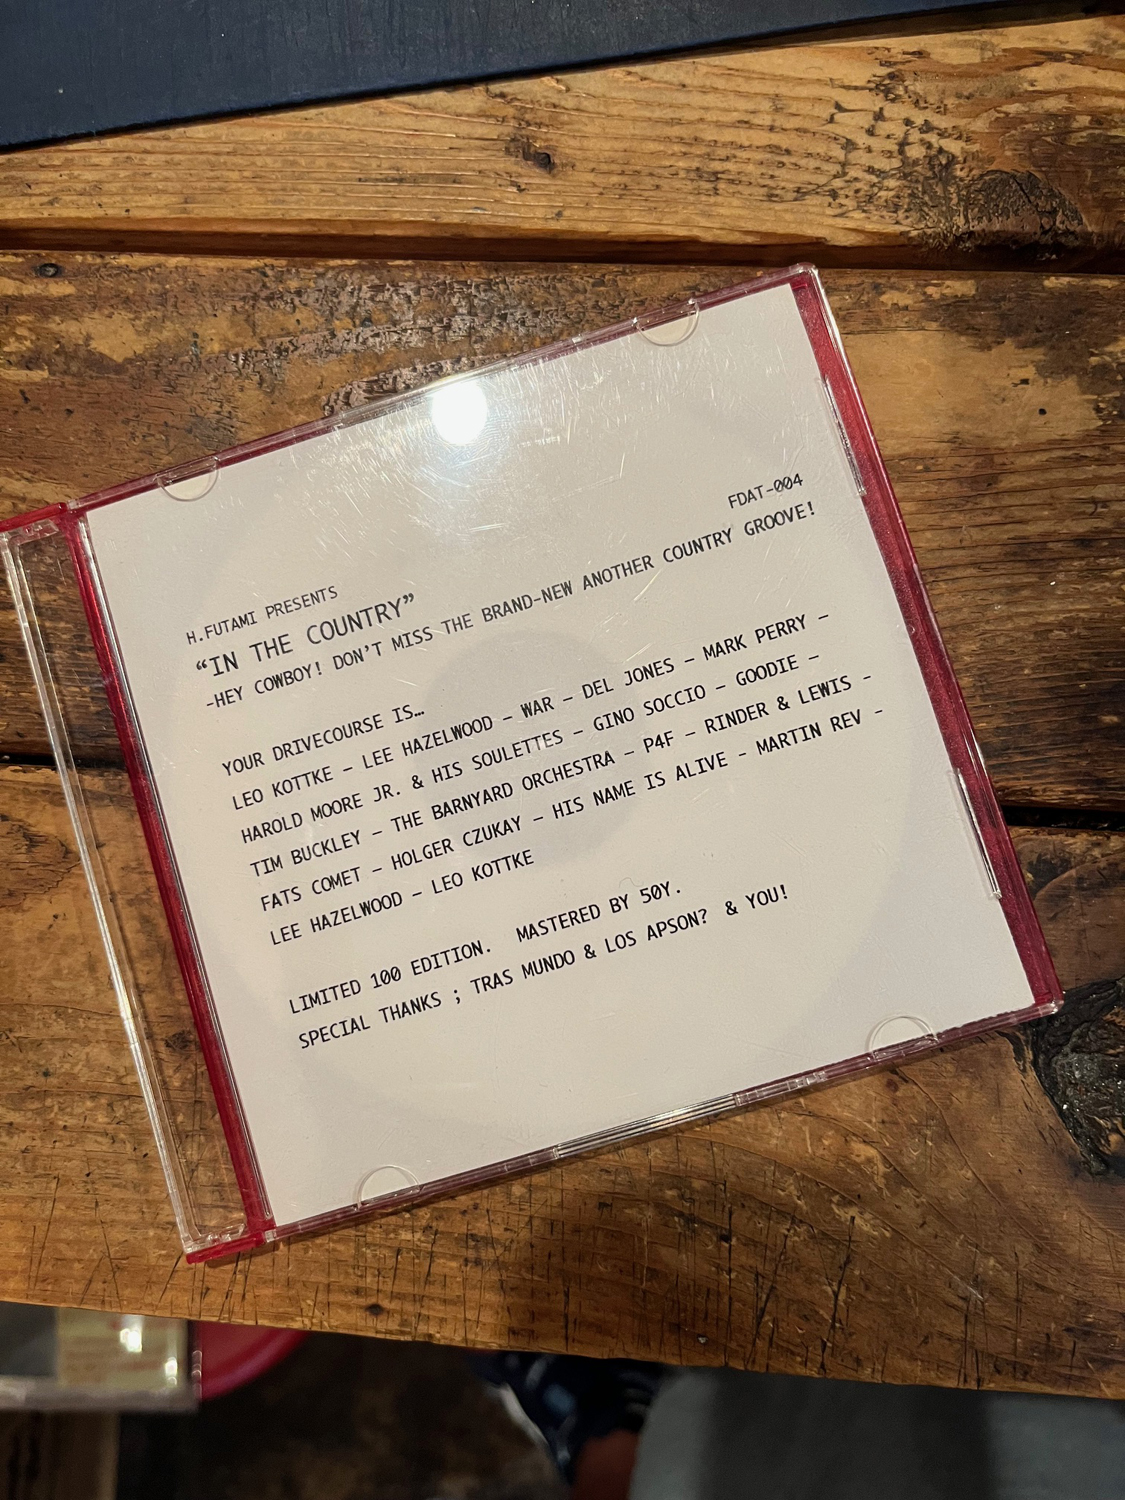 FDAT-004
H.FUTAMI PRESENTS
“IN THE COUNTRY”
-HEY COWBOY! DON’T MISS THE BRAND-NEW ANOTHER COUNTRY GROOVE!
YOUR DRIVECOURSE IS…
LEO KOTTKE - LEE HAZELWOOD - WAR - DEL JONES - MARK PERRY -
HAROLD MOORE JR. & HIS SOULETTES - GINO SOCCIO - GOODIE -
TIM BUCKLEY - THE BARNYARD ORCHESTRA - P4F - RINDER & LEWIS -
FATS COMET - HOLGER CZUKAY - HIS NAME IS ALIVE - MARTIN REV -
LEE HAZELWOOD - LEO KOTTKE
LIMITED 100 EDITION. MASTERED BY 50Y.
SPECIAL THANKS ; TRAS MUNDO & LOS APSON? & YOU!